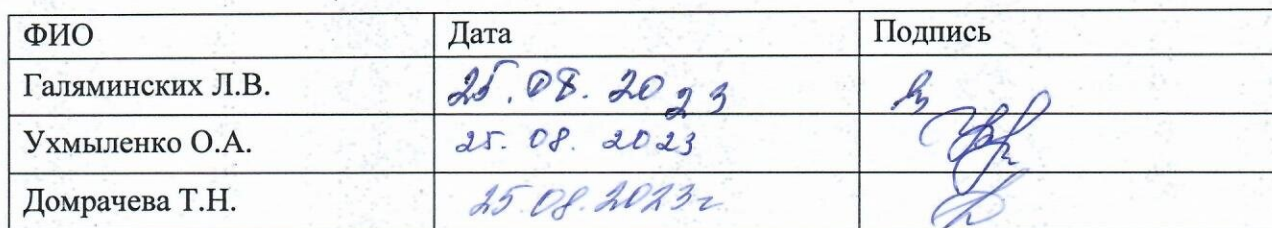 ФИО Дата Подпись
Галяминских Л.В. 25.08.2023
Ухмыленко О.А. 25.08.2023
Домрачева Т.Н. 25.08.2023г